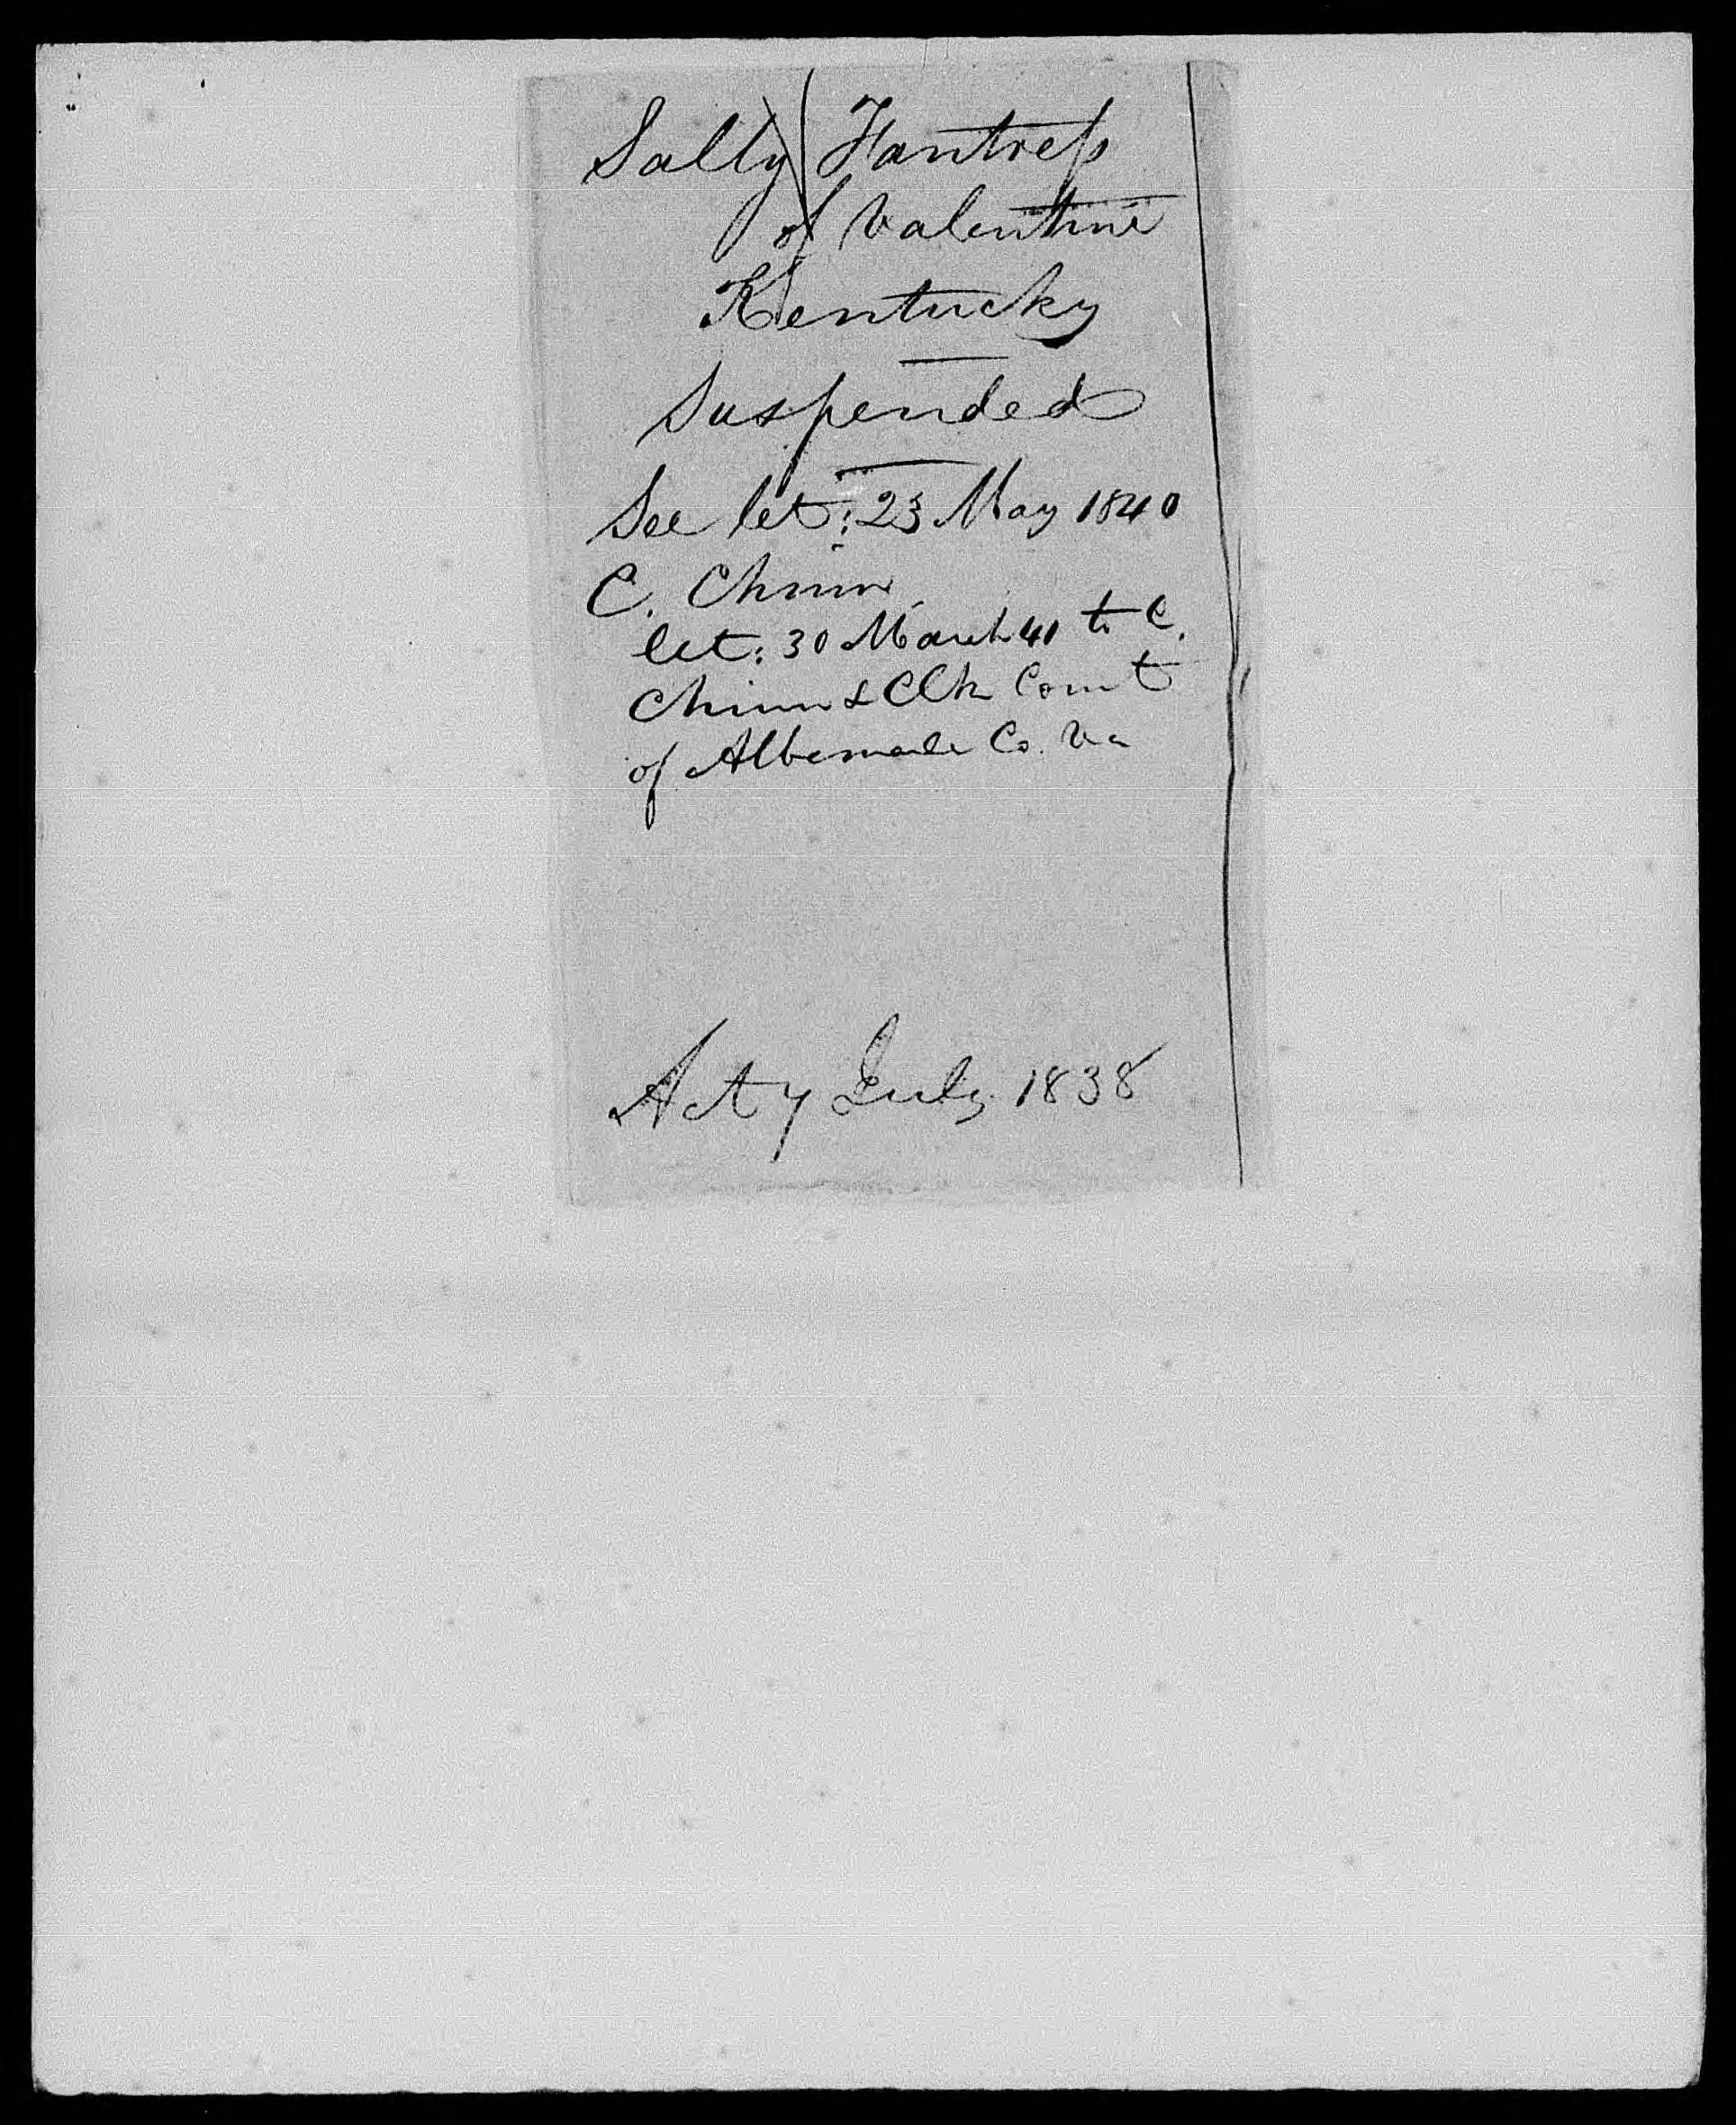 Sally Fantress
of Valentine
Kentucky
Suspended
See let: 23 May 1840
C. Chinn
let: 30 March 41 to C.
Chinn & Clk Court
of Albemarle Co. Va
Act 7 July 1838